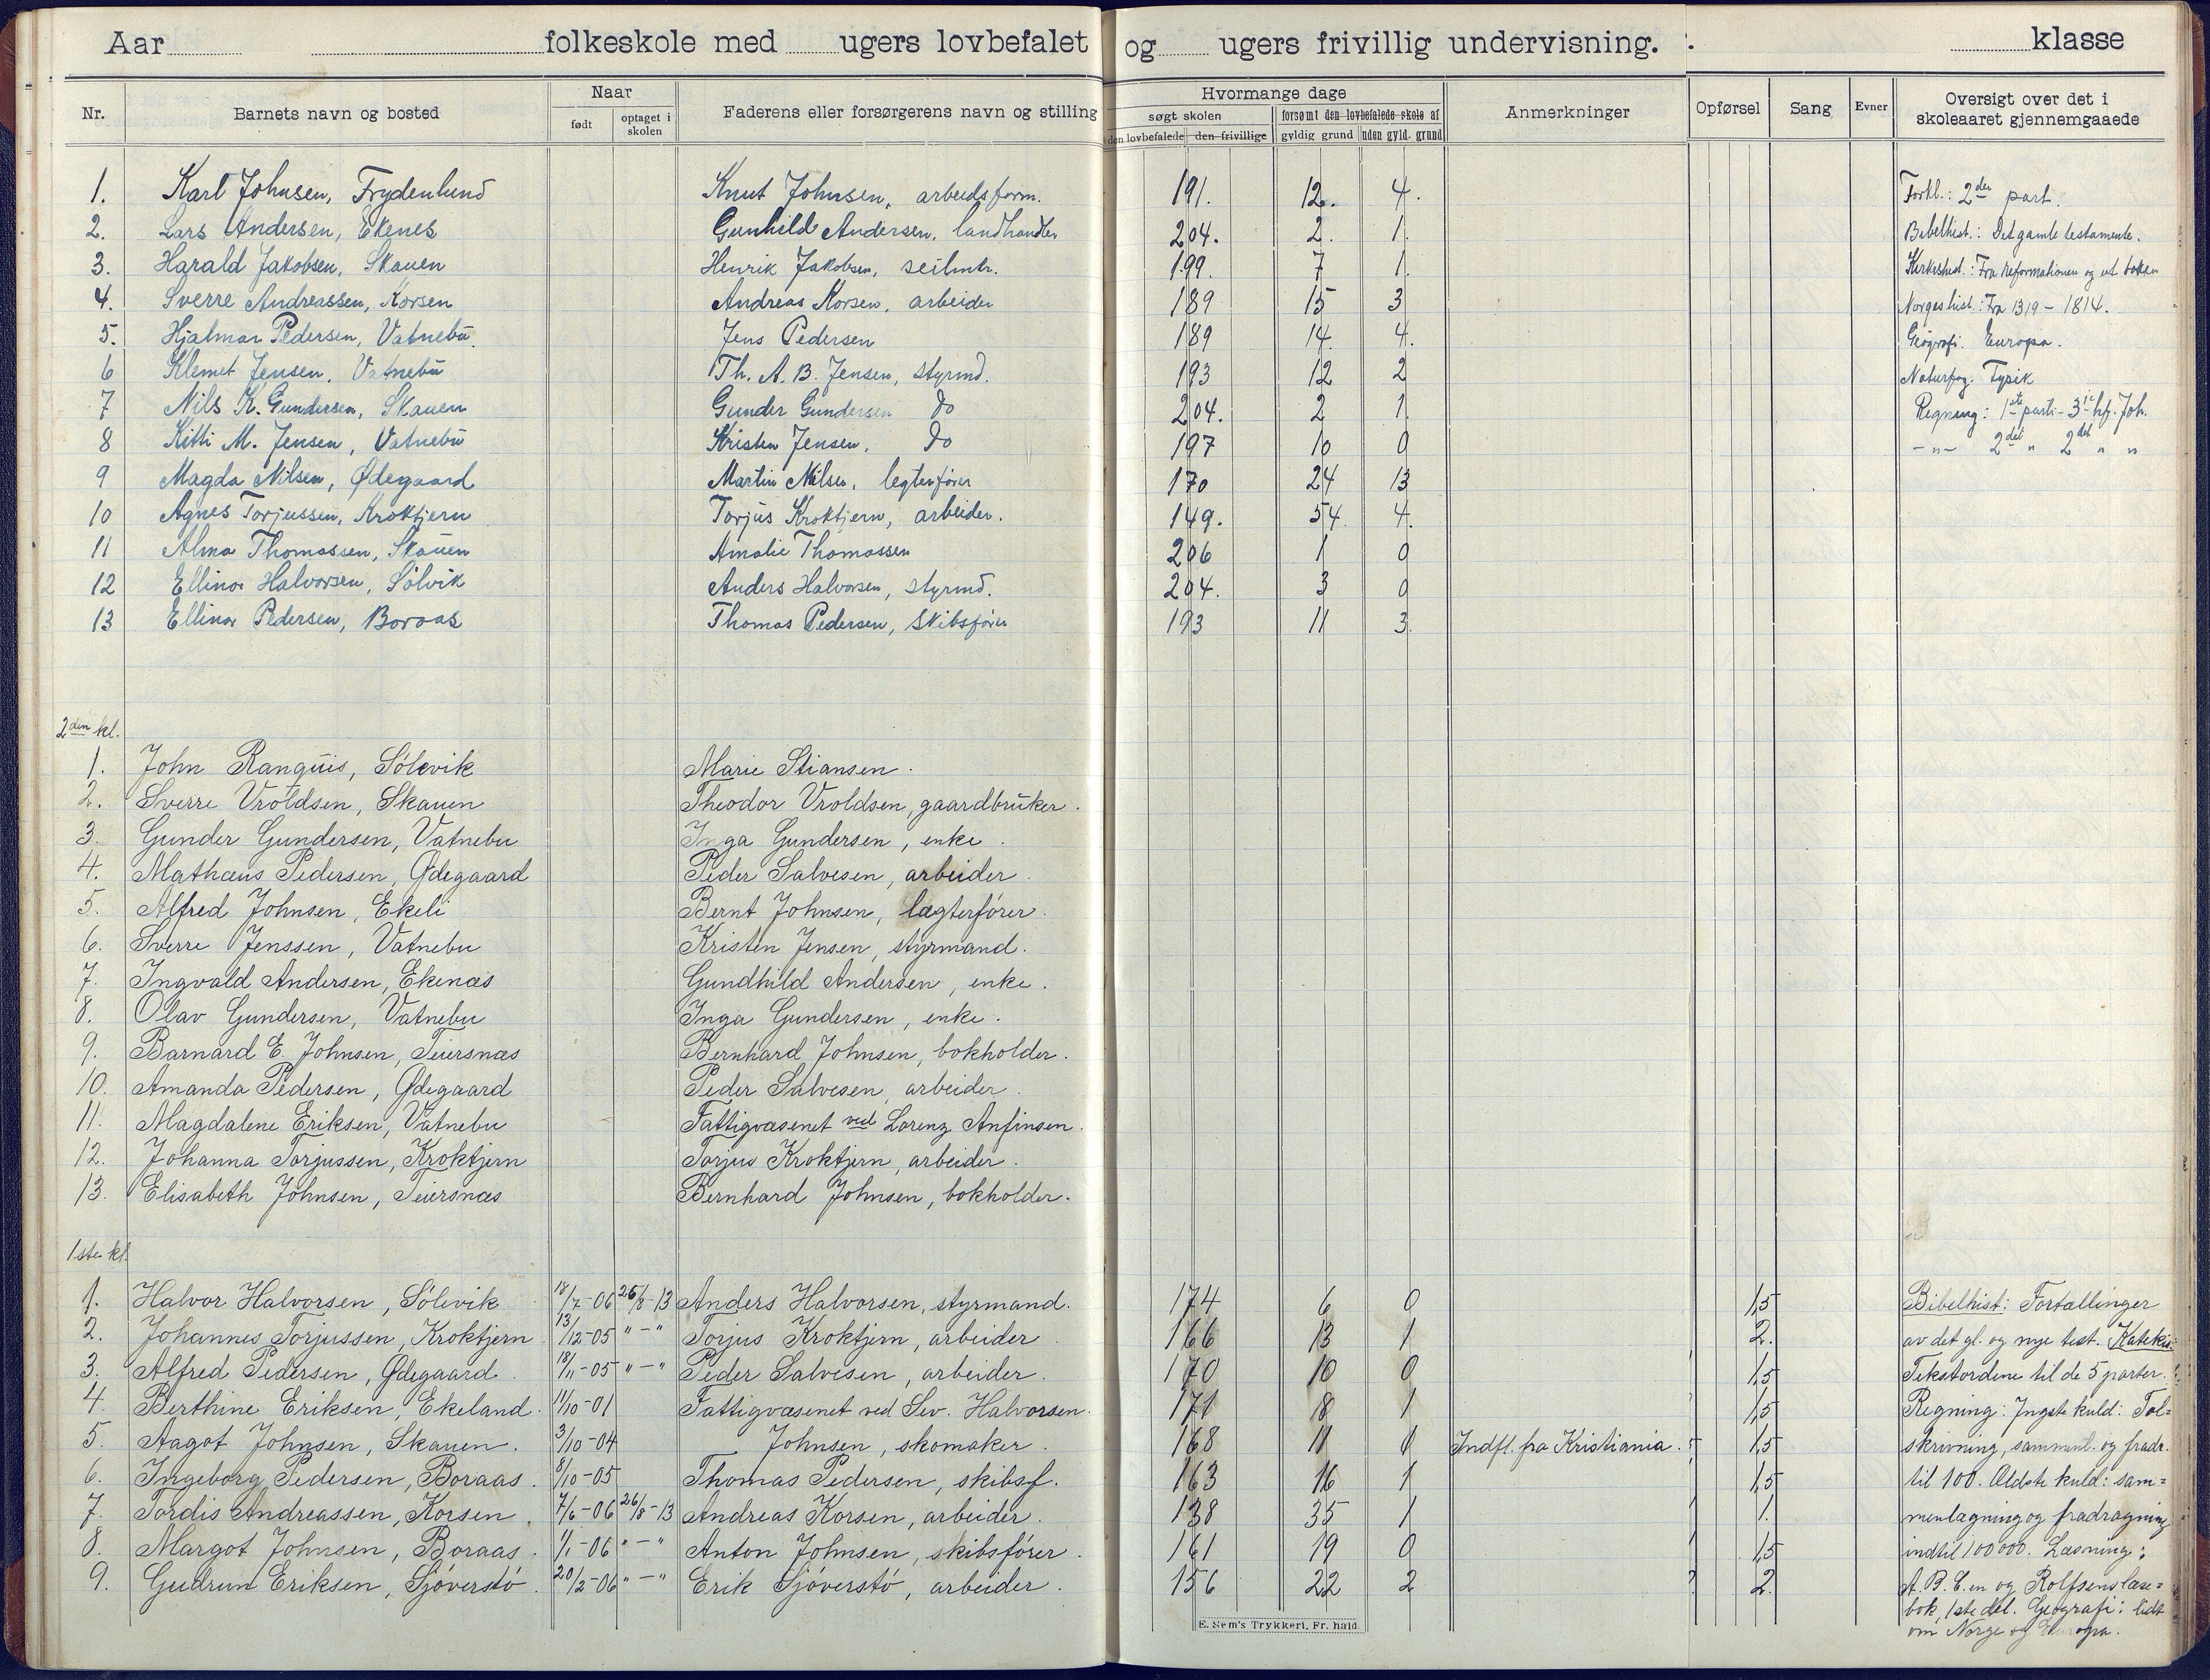 Aar folkeskole med ugers lovbefalet og ugers frivillig undervisning. klasse
Nr. Barnets navn og bosted Naar født optaget i skolen Faderens eller forsørgerens navn og stilling Hvormange dage søgt skolen den lovbefalede den frivillige forsømt den lovbefalede skole af gyldig grund uden gyld. grund Anmerkninger Opførsel Sang Evner Oversigt over det i skoleaaret gjennemgaaede
1. Karl Johnsen, Frydenlund Knut Johnsen, arbeidsform. 191. 12. 4. Forkl.: 2den part.
2. Lars Andersen, Ekenes Gunhild Andersen, landhandler 204. 2. 1. Bibelhist.: Det gamle testamente.
3. Harald Jakobsen, Skauen Henrik Jakobsen, seilmk. 199. 7 1. Kirkehist.: Fra Reformationen og ut boken
4. Sverre Andreassen, Korsen Andreas Korsen, arbeider 189 15 3 Norgeshist.: Fra 1319 - 1814.
5. Hjalmar Pedersen, Vatnebu. Jens Pedersen 189 14. 4. Geografi. Europa.
6 Klemet Jensen, Vatnebu Th. A. B. Jensen, styrmd. 193 12 2 Naturfag: Fysik
7 Nils K. Gundersen, Skauen Gunder Gundersen do 204. 2 1 Regning: 1ste parti - 3ie hf. Joh.
8 Kitti M. Jensen, Vatnebu Kristen Jensen, do 197 10 0 - " - 2det " 2det " "
9 Magda Nilsen, Ødegaard Martin Nilsen, legterfører 170 24 13
10 Agnes Torjussen, Kroktjern Torjus Kroktjern, arbeider. 149. 54. 4.
11 Alma Thomassen, Skauen Amalie Thomassen 206 1 0
12 Ellinor Halvorsen, Sølvik Anders Halvorsen, styrmd. 204. 3 0
13 Ellinor Pedersen, Boraas Thomas Pedersen, skibsfører 193 11 3.
2den kl.
1. John Ranquis, Sølevik Marie Stiansen.
2. Sverre Vroldsen, Skauen Theodor Vroldsen, gaardbruker.
3. Gunder Gundersen, Vatnebu Inga Gundersen, enke.
4. Mathæus Pedersen, Ødegaard Peder Salvesen, arbeider.
5. Alfred Johnsen, Ekeli Bernt Johnsen, lægterfører.
6. Sverre Jenssen, Vatnebu Kristen Jensen, styrmand.
7. Ingvald Andersen, Ekenæs Gundhild Andersen, enke.
8. Olav Gundersen, Vatnebu Inga Gundersen, enke.
9. Barnard E. Johnsen, Teiersnæs Bernhard Johnsen, bokholder.
10. Amanda Pedersen, Ødegaard Peder Salvesen, arbeider.
11. Magdalene Eriksen, Vatnebu Fattigvæsenet ved Lorenz Anfinsen.
12. Johanna Torjussen, Kroktjern Torjus Kroktjern, arbeider.
13. Elisabeth Johnsen, Teiersnæs Bernhard Johnsen, bokholder.
1ste kl.
1. Halvor Halvorsen, Sølevik 18/7-06 26/8-13 Anders Halvorsen, styrmand. 174 6 0 1,5 Bibelhist: Fortællinger
2. Johannes Torjussen, Kroktjern 13/12-05 " - " Torjus Kroktjern, arbeider 166 13 1 2. av det gl. og nye test. Katekis:
3. Alfred Pedersen, Ødegaard. 18/11-05 " - " Peder Salvesen, arbeider. 170 10 0 1,5 Tekstordene til de 5 parter.
4. Berthine Eriksen, Ekeland. 11/10-01 Fattigvæsenet ved Sev. Halvorsen. 171 8 1 1,5 Regning: Yngste kuld: Tal=
5. Aagot Johnsen, Skauen. 3/10-04 Johnsen, skomaker. 168 11 Indfl. fra Kristiania. 1,5 skrivning, samment. og fradr.
6. Ingeborg Pedersen, Boraas. 8/10-05 Thomas Pedersen, skibsf. 163 16 1 1,5 til 100. Ældste kuld: sam=
7. Tordis Andreassen, Korsen. 7/6-06 26/8-13 Andreas Korsen, arbeider. 138 35 1 1. menlægning og fradragning
8. Margot Johnsen, Boraas. 1/1-06 " - " Anton Johnsen, skibsfører. 161 19 0 1,5 indtil 100000. Læsning:
9. Gudrun Eriksen, Sjøverstø. 20/2-06 " - " Erik Sjøverstø, arbeider. 156 22 2 2. A. B. C. en og Rolfsens læse=
bok, 1ste del. Geografi: lidt
om Norge og Europa.
E. Sem's Trykkeri, Fr. hald.